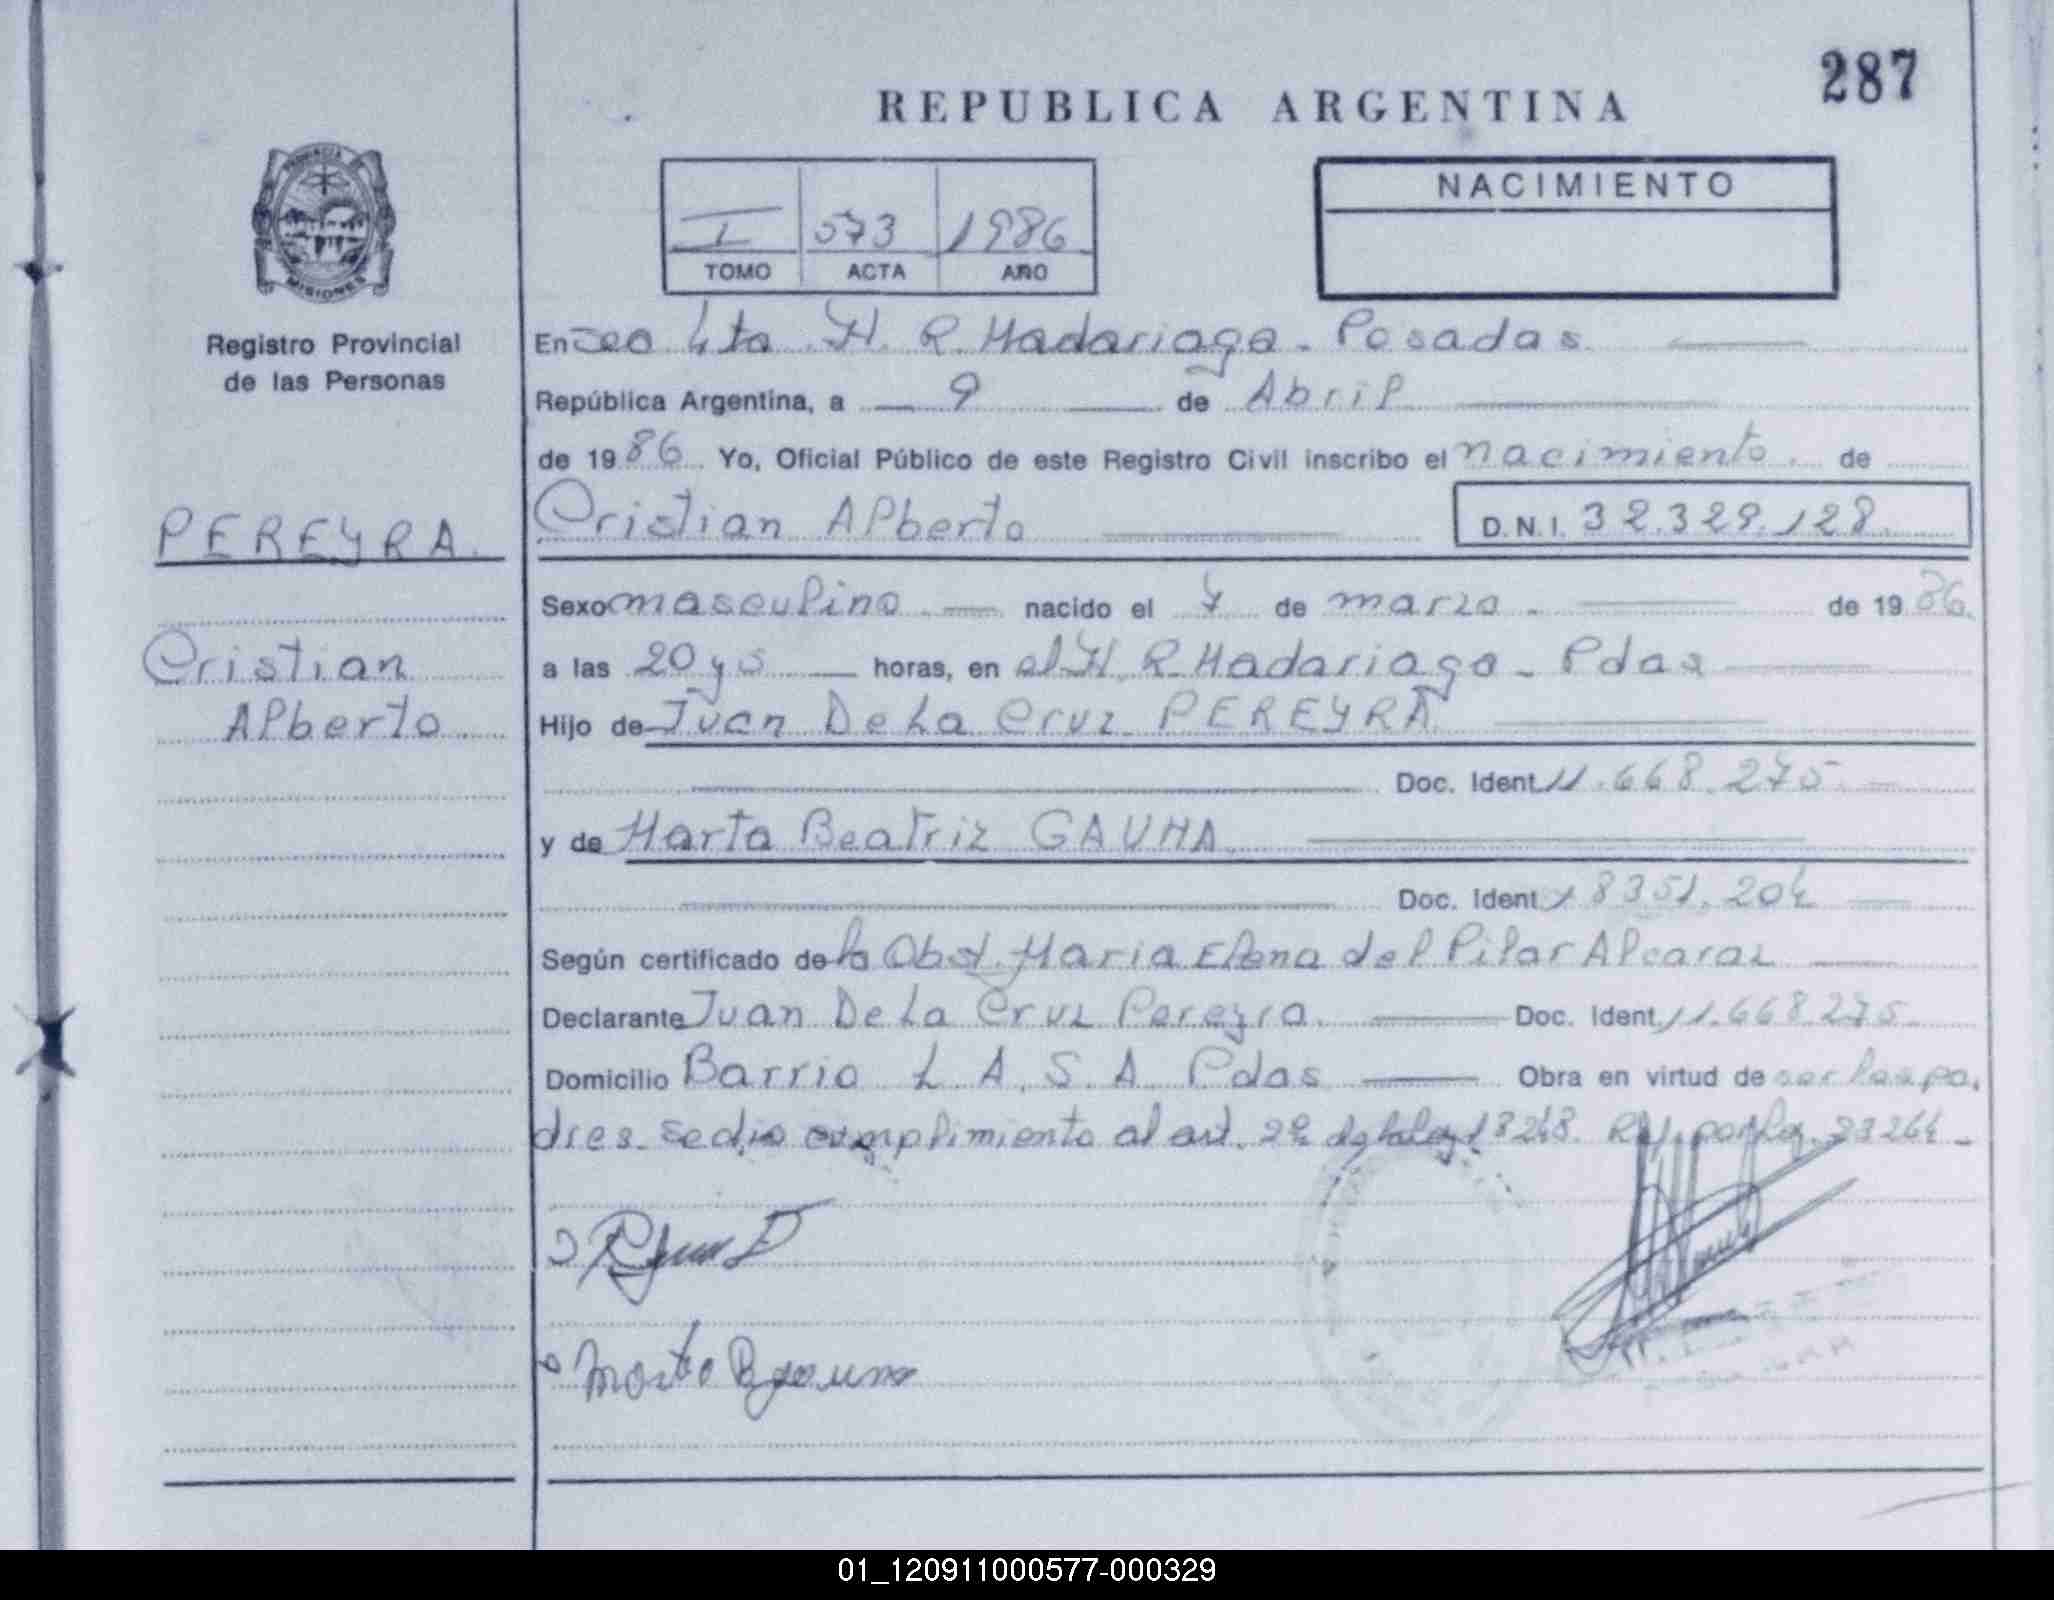 287
REPUBLICA ARGENTINA
PROVINCIA
MISIONES
Registro Provincial
de las Personas
I 573 1986
TOMO ACTA AÑO
NACIMIENTO
En Sec 4ta H. R. Madariaga - Posadas
República Argentina, a 9 de Abril
de 1986 Yo, Oficial Público de este Registro Civil inscribo el nacimiento de
PEREYRA.
Cristian Alberto
D.N.I. 32.329.128
Sexo masculino nacido el 7 de marzo de 1986.
Cristian
Alberto
a las 20 y 5 horas, en el H. R. Madariaga - Pdas
Hijo de Juan De La Cruz PEREYRA
Doc. Ident 11.668.275
y de Marta Beatriz GAUNA
Doc. Ident 18351.204
Según certificado de la Obst. Maria Elena del Pilar Alcaraz
Declarante Juan De La Cruz Pereyra. Doc. Ident 11.668.275
Domicilio Barrio L. A. S. A. Pdas Obra en virtud de ser los pa.
dres. se dio cumplimiento al art. 2º de la ley 18248. por Ley. 23264 -
01_120911000577-000329